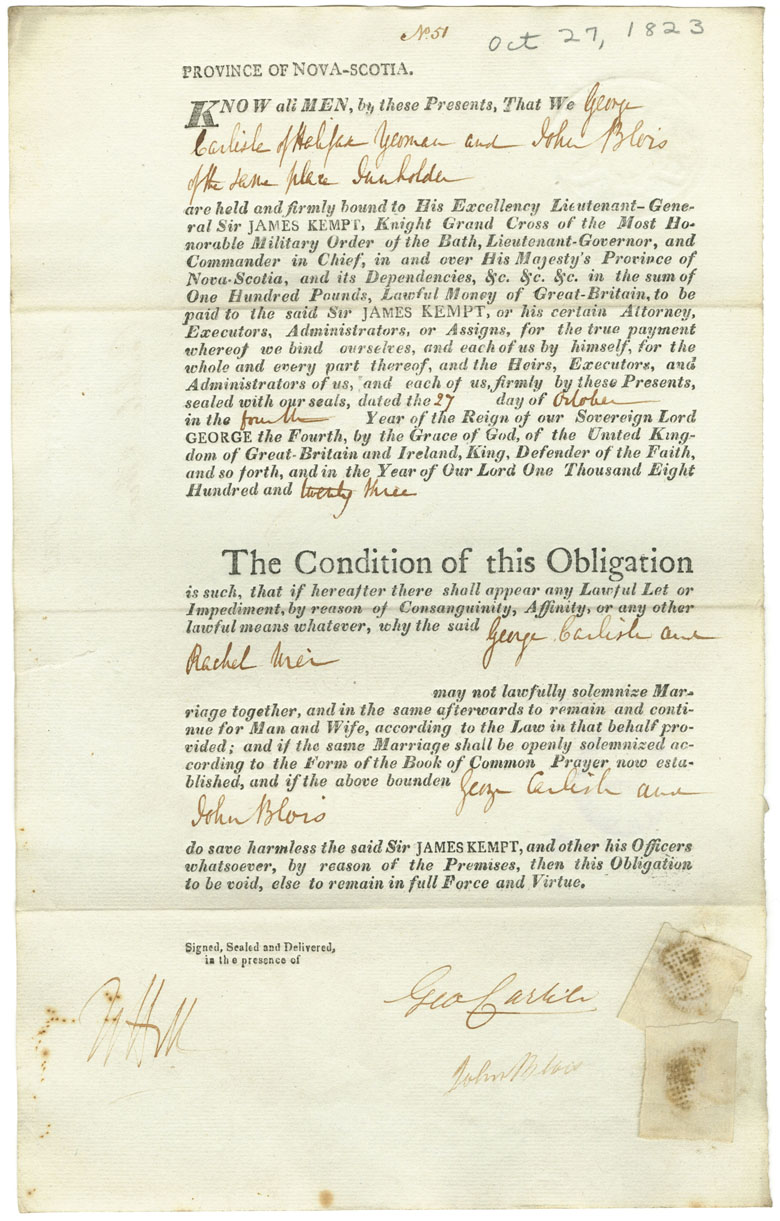 No. 51
Oct 27, 1823
PROVINCE OF NOVA-SCOTIA.
KNOW all MEN, by these Presents, That We George
Carlisle of Halifax Yeoman and John Blois
of the same place Innholder
are held and firmly bound to His Excellency Lieutenant-Gene-
ral Sir JAMES KEMPT, Knight Grand Cross of the Most Ho-
norable Military Order of the Bath, Lieutenant-Governor, and
Commander in Chief, in and over His Majesty's Province of
Nova-Scotia, and its Dependencies, &c. &c. &c. in the sum of
One Hundred Pounds, Lawful Money of Great-Britain, to be
paid to the said Sir JAMES KEMPT, or his certain Attorney,
Executors, Administrators, or Assigns, for the true payment
whereof we bind ourselves, and each of us by himself, for the
whole and every part thereof, and the Heirs, Executors, and
Administrators of us, and each of us, firmly by these Presents,
sealed with our seals, dated the 27 day of October
in the fourth Year of the Reign of our Sovereign Lord
GEORGE the Fourth, by the Grace of God, of the United King-
dom of Great-Britain and Ireland, King, Defender of the Faith,
and so forth, and in the Year of Our Lord One Thousand Eight
Hundred and twenty three
The Condition of this Obligation
is such, that if hereafter there shall appear any Lawful Let or
Impediment, by reason of Consanguinity, Affinity, or any other
lawful means whatever, why the said George Carlisle and
Rachel
may not lawfully solemnize Mar-
riage together, and in the same afterwards to remain and conti-
nue for Man and Wife, according to the Law in that behalf pro-
vided; and if the same Marriage shall be openly solemnized ac-
cording to the Form of the Book of Common Prayer now esta-
blished, and if the above bounden George Carlisle and
John Blois
do save harmless the said Sir JAMES KEMPT, and other his Officers
whatsoever, by reason of the Premises, then this Obligation
to be void, else to remain in full Force and Virtue.
Signed, Sealed and Delivered,
in the presence of
Geo Carlile
John Blois